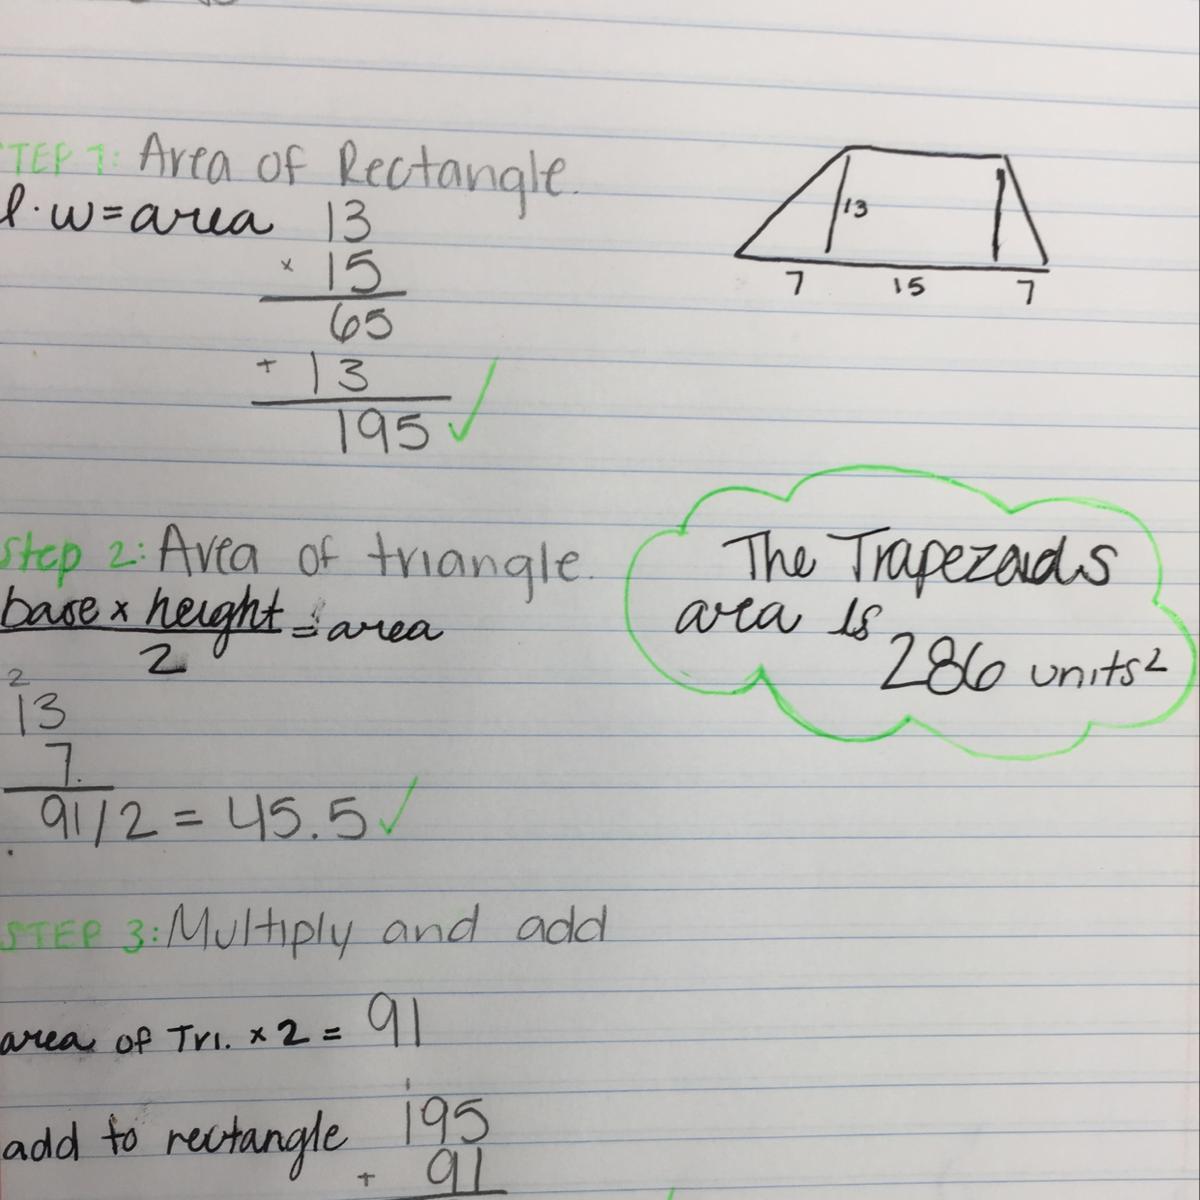 TEP 1: Area of Rectangle.
l · w = area
13
x 15
65
+ 13
195 ✓
13
7 15 7
Step 2: Area of triangle.
base x height = area
2
2
13
7.
91/2 = 45.5 ✓
The Trapezoids
area is
286 units²
STEP 3: Multiply and add
area of Tri. x 2 = 91
1
add to rectangle 195
+ 91